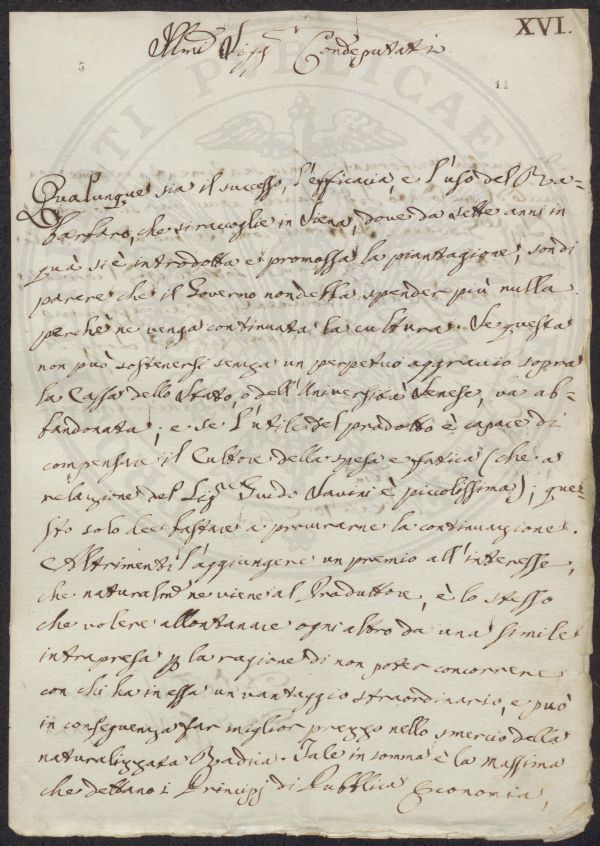 XVI.
Illmi Sigg.ri Condeputati
5
11
Qualunque sia il successo, l'efficacia, e l'uso del Ra-
barbaro, che si raccoglie in Siena, dove da sette anni in
quà si è introdotta e promossa la piantagione, son di
parere che il Governo non debba spender più nulla
perchè ne venga continuata la cultura. Se questa
non può sostenersi senza un perpetuo aggravio sopra
la Cassa dello Stato, o dell'Università Senese, va ab-
bandonata; e se l'utile del prodotto è capace di
compensare il Cultore della spesa e fatica (che a
relazione del Sig.re Guido Savini è piccolissima); que-
sto solo dee bastare a procurarne la continuazione.
Altrimenti l'aggiungere un premio all'interesse,
che naturalmte ne viene al Produttore, è lo stesso
che volere allontanare ogni altro da una simile
intrapresa p la ragione di non poter concorrere
con chi ha in essa un vantaggio straordinario, e può
in conseguenza far miglior prezzo nello smercio della
naturalizzata Radica. Tale in somma è la massima
che dettano i Principj di Pubblica Economia,